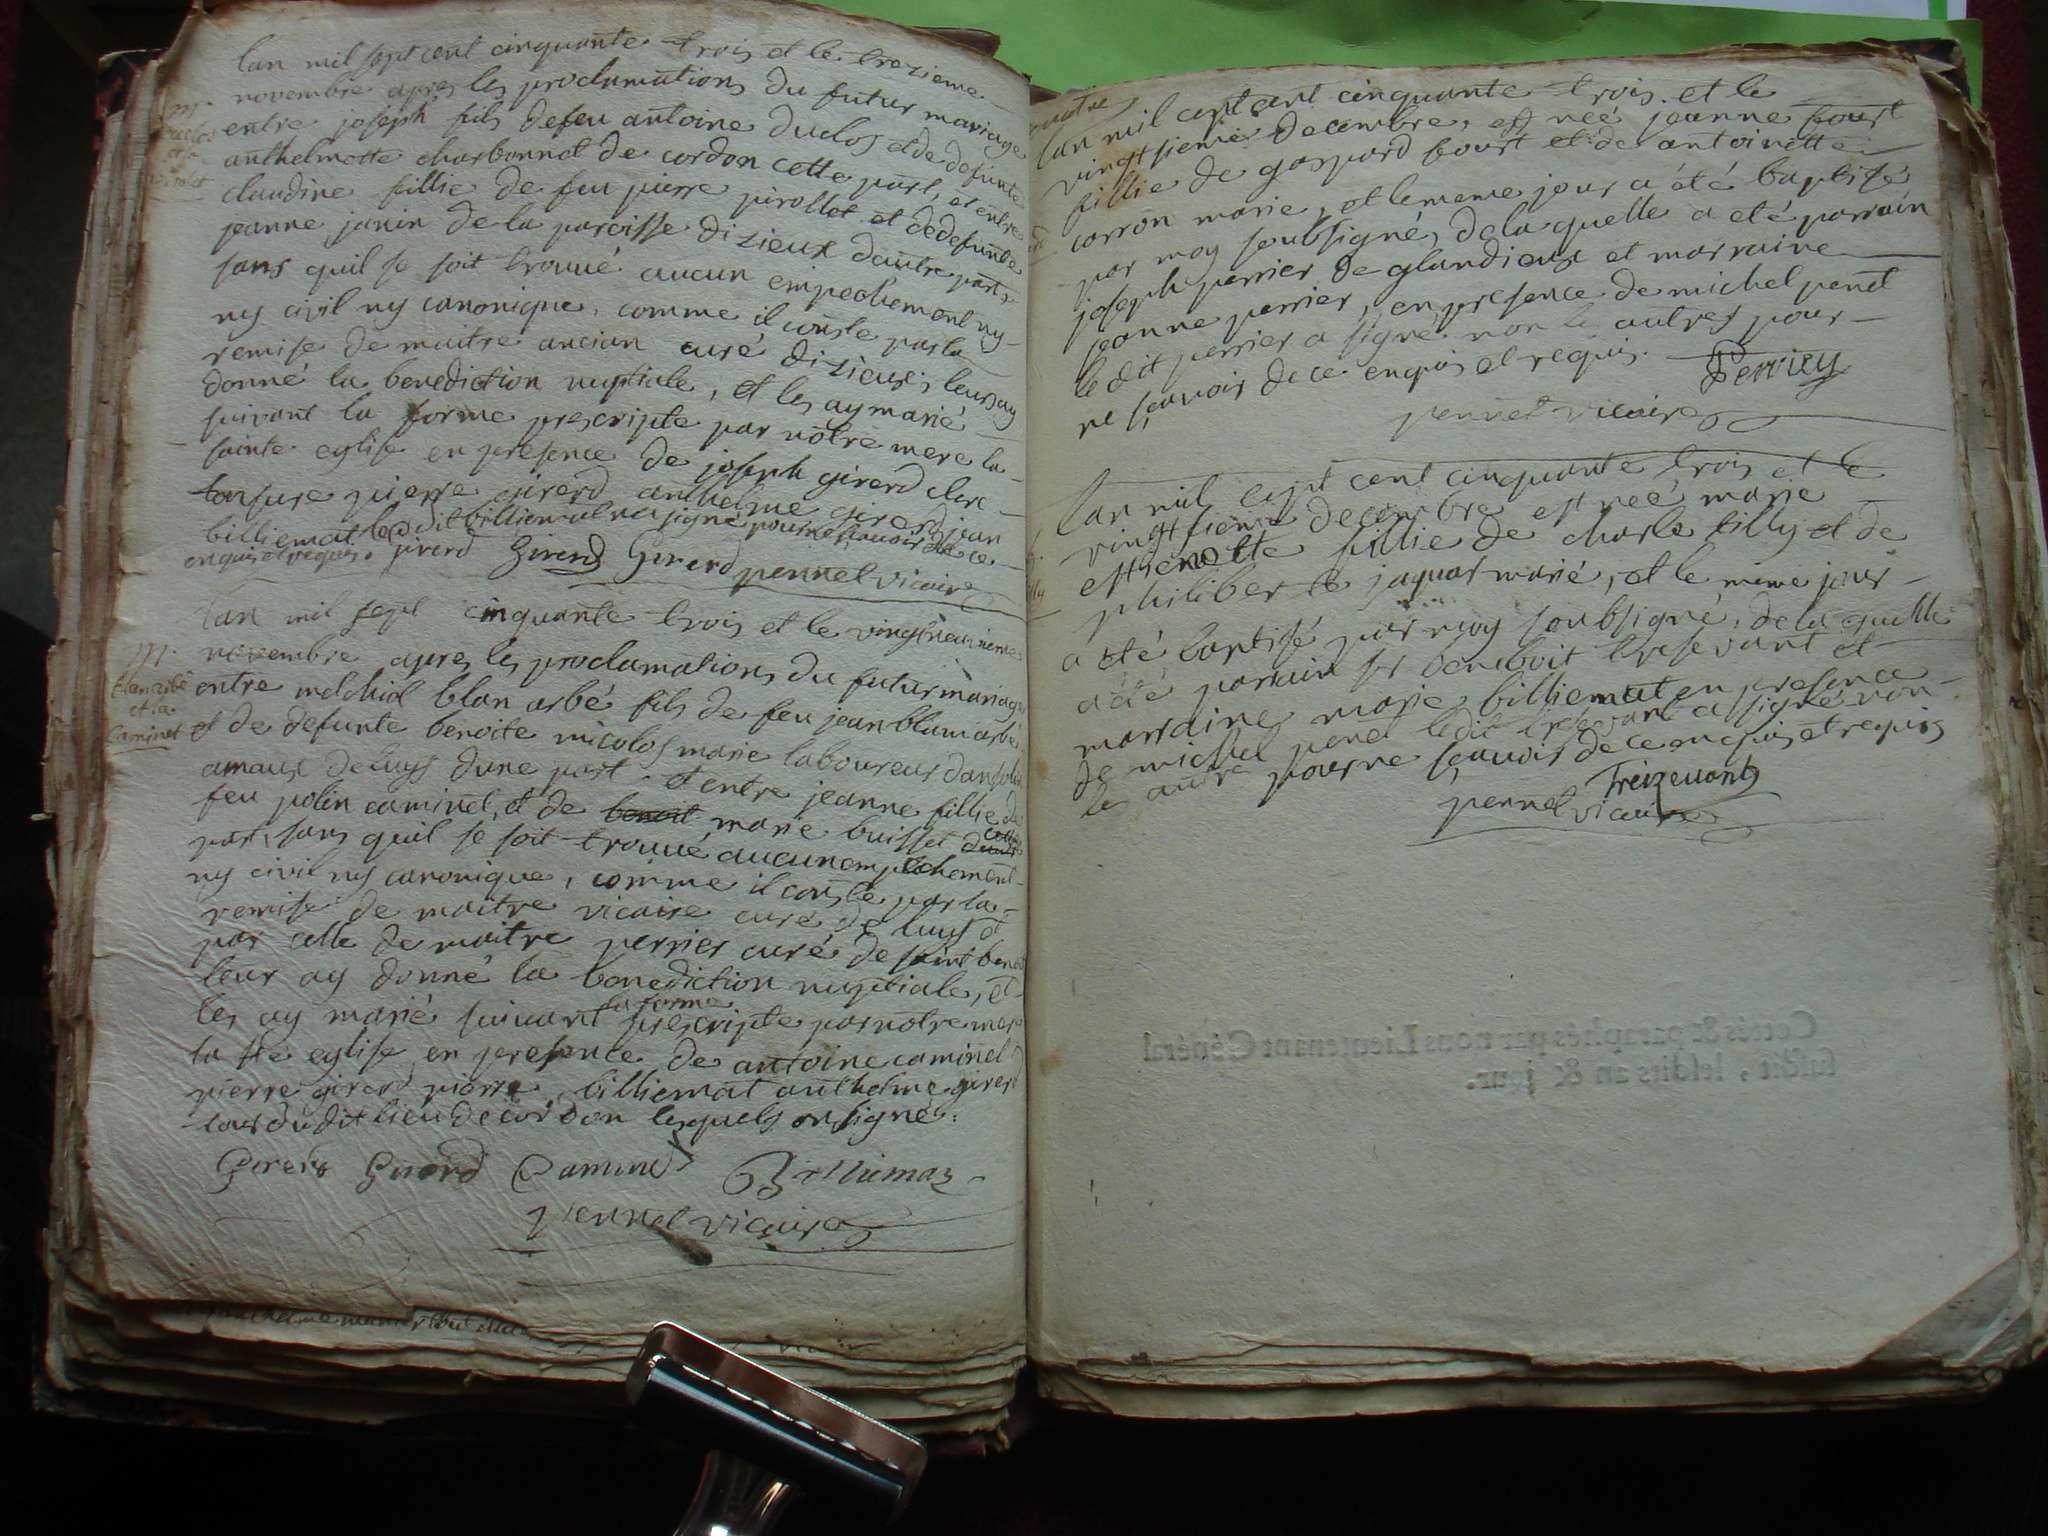 lan mil sept cent cinquante trois et le trezieme
novembre apres les proclamations du futur mariage
entre joseph fils defeu antoine duclos et de defunte
anthelmette charbonnet de cordon cette part, et entre
claudine fillie de feu pierre pirollet et dedefunte
jeanne janin de la paroisse dizieux dautre part,
sans quil se soit trouvé aucun empechement ny
ny civil ny canonique, comme il conste par la
remise de maitre ancian curé dizieux, leur ay
donné la benediction nuptiale, et les ay marié
suivant la forme prescripte par nôtre mere la
sainte eglise en presence de joseph girerd clerc
tonsure pierre girerd anthelme girerd jean
billiemat ledit billiemat na signé pour ne scavoir de ce
enquis et requis. girerd Girerd Girerd pennet vicaire
M.
duclos
et la
pirolet
lan mil sept cinquante trois et le vingtneuvieme
novembre apres les proclamations du futur mariage
entre melchiol blan arbé fils de feu jean blam arbé
et de defunte benoite micolos marie laboureur
amaux de luys dune part et entre jeanne fillie de
feu polin caminet, et de benoit marie buisset
part, sans quil se soit trouvé aucun empechement
ny civil ny canonique, comme il conste par la
remise de maitre vicaire curé de luys et
par celle de maitre perrier curé de saint benoit
leur ay donné la benediction nuptiale, et
les ay marié suivant la forme prescripte par notre mere
la ste eglise en presence de antoine caminet
pierre girerd pierre billiemat anthelme girerd
tous dudit lieu de cordon lesquels on signé.
Girerd Girerd Caminet Billiemaz
pennet vicaire
M.
blan arbé
et la
caminet
lan mil cept cent cinquante trois et le
vingtsieme decembre, est neé jeanne bourt
fillie de gaspard bourt et de antoinette
corron marie, et lememe jour a été baptisé
par moy soubsigné, delaquelle a eté parrain
joseph perrier de glandieux et marraine
jeanne perrier, en presence de michel penet
le dit perrier a signé non les autres pour
ne sçavoir de ce enquis et requis. Perrier
pennet vicaire
lan mil cept cent cinquante trois et le
vingtsieme decembre est neé marie
estienette fillie de charle billy et de
philiberte jaquar marié, et le même jour
a été baptisé par moy soubsigné, de laquelle
a eté parrain sr benoit tresevant et
marraine marie billiemat en presence
de michel penet ledit tresevant a signé non
les autre pour ne sçavoir de ce enquis et requis
Treizeuant
pennet vicaire
Cottés & paraphés par nous Lieutenant Général
susdit, lesdits an & jour.